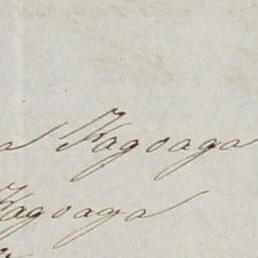 a Kagoaga
Kagoaga